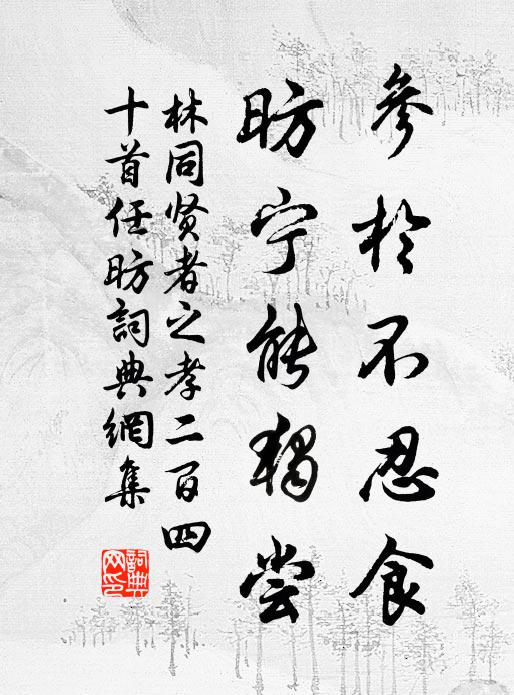 参於不忍食
昉宁能独尝
林同贤者之孝二百四
十首任昉詞典網集
詞典
网印